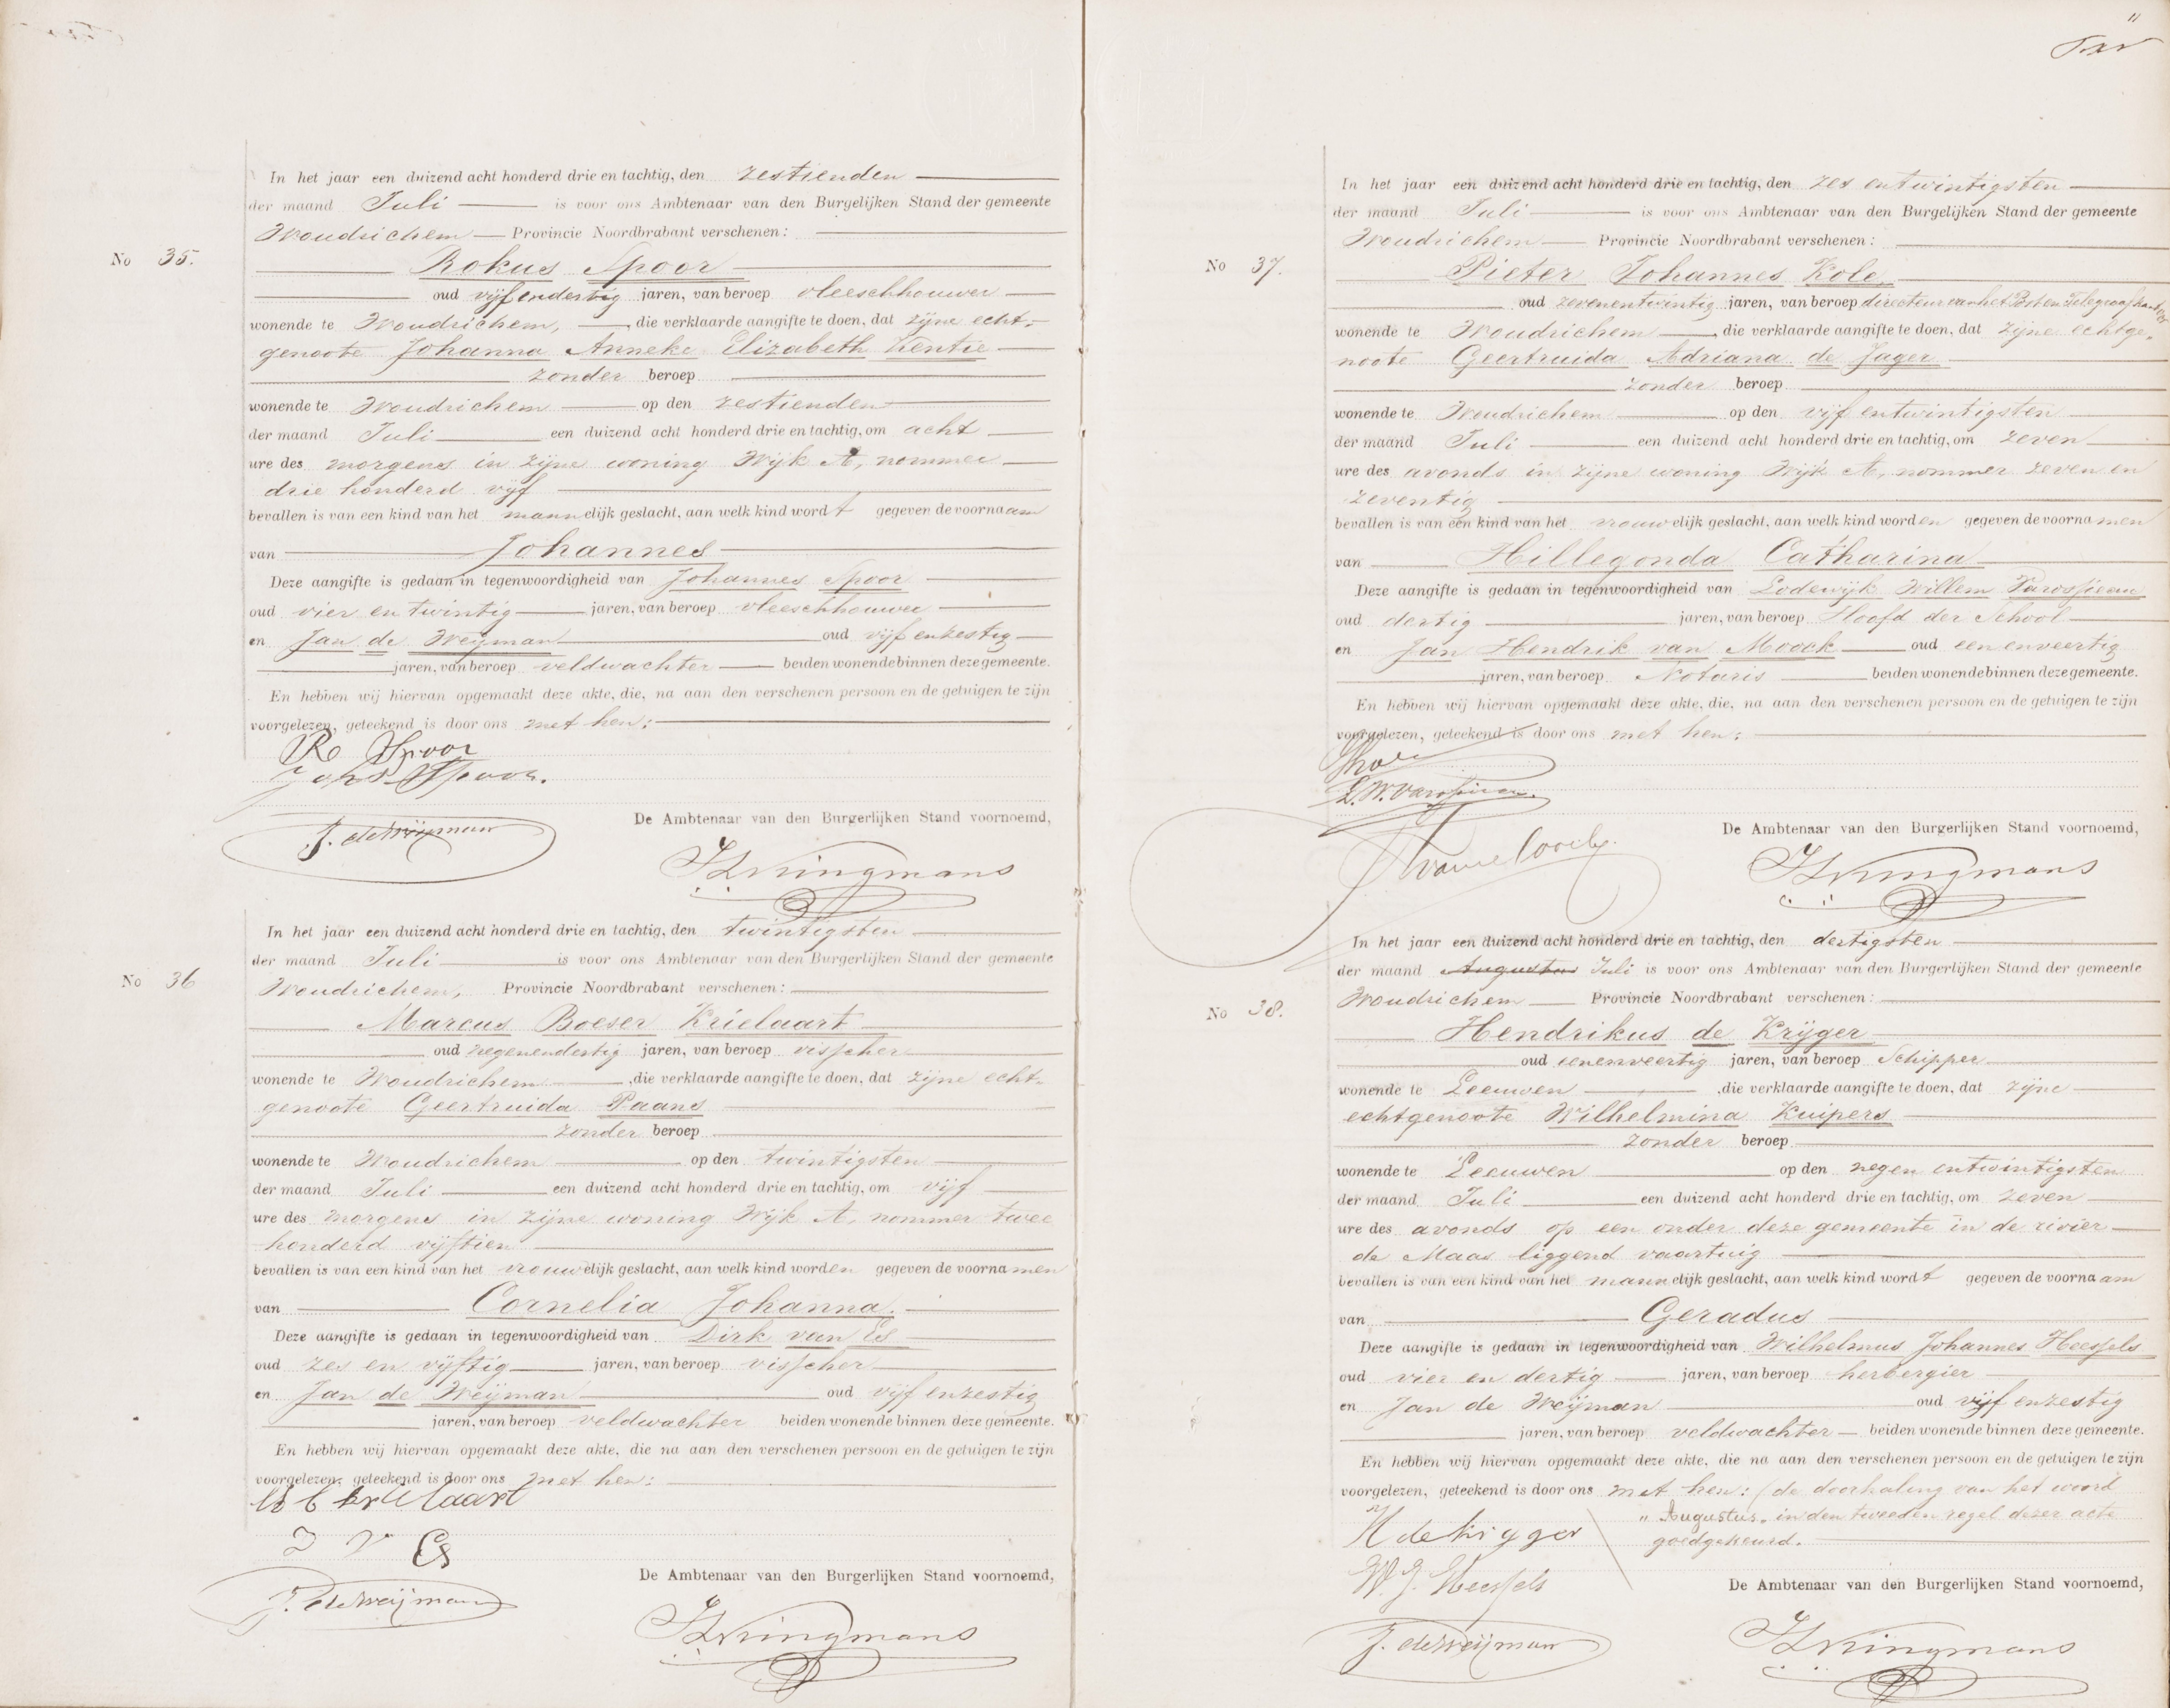 In het jaar een duizend acht honderd drie en tachtig, den zestienden
der maand Juli is voor ons Ambtenaar van den Burgelijken Stand der gemeente
Woudrichem Provincie Noordbrabant verschenen:
No 35.
Rokus Spoor
oud vijfendertig jaren, van beroep vleeschhouwer
wonende te Woudrichem, die verklaarde aangifte te doen, dat zijne echt-
genoote Johanna Anneke Elizabeth Kentie
zonder beroep
wonende te Woudrichem op den zestienden
der maand Juli een duizend acht honderd drie en tachtig, om acht
ure des morgens in zijne woning Wijk A, nommer
drie honderd vijf
bevallen is van een kind van het mannelijk geslacht, aan welk kind wordt gegeven de voornaam
van Johannes
Deze aangifte is gedaan in tegenwoordigheid van Johannes Spoor
oud vier en twintig jaren, van beroep vleeschhouwer
en Jan de Weijman oud vijf enzestig
jaren, van beroep veldwachter beiden wonende binnen deze gemeente.
En hebben wij hiervan opgemaakt deze akte, die, na aan den verschenen persoon en de getuigen te zijn
voorgelezen, geteekend is door ons met hen:
R Spoor
Johs Spoor.
De Ambtenaar van den Burgerlijken Stand voornoemd,
J. de Weijman
In het jaar een duizend acht honderd drie en tachtig, den twintigsten
der maand Juli is voor ons Ambtenaar van den Burgerlijken Stand der gemeente
No 36
Woudrichem, Provincie Noordbrabant verschenen:
Marcus Boeser Krielaart
oud negenendertig jaren, van beroep visscher
wonende te Woudrichem, die verklaarde aangifte te doen, dat zijne echt-
genoote Geertruida Paans
zonder beroep
wonende te Woudrichem op den twintigsten
der maand Juli een duizend acht honderd drie en tachtig, om vijf
ure des morgens in zijne woning Wijk A, nommer twee
honderd vijftien
bevallen is van een kind van het vrouwelijk geslacht, aan welk kind worden gegeven de voornamen
van Cornelia Johanna.
Deze aangifte is gedaan in tegenwoordigheid van Dirk van Es
oud zes en vijftig jaren, van beroep visscher
en Jan de Weijman oud vijf enzestig
jaren, van beroep veldwachter beiden wonende binnen deze gemeente.
En hebben wij hiervan opgemaakt deze akte, die na aan den verschenen persoon en de getuigen te zijn
voorgelezen, geteekend is door ons met hen:
D V Es
De Ambtenaar van den Burgerlijken Stand voornoemd,
J. de Weijman
In het jaar een duizend acht honderd drie en tachtig, den zes entwintigsten
der maand Juli is voor ons Ambtenaar van den Burgelijken Stand der gemeente
Woudrichem Provincie Noordbrabant verschenen:
No 37.
Pieter Johannes Kole
oud zevenentwintig jaren, van beroep directeur van het Post en Telegraafkantoor
wonende te Woudrichem, die verklaarde aangifte te doen, dat zijne echtge-
noote Geertruida Adriana de Jager
zonder beroep
wonende te Woudrichem op den vijf entwintigsten
der maand Juli een duizend acht honderd drie en tachtig, om zeven
ure des avonds in zijne woning Wijk A, nommer zeven en
zeventig
bevallen is van een kind van het vrouwelijk geslacht, aan welk kind worden gegeven de voornamen
van Hillegonda Catharina
Deze aangifte is gedaan in tegenwoordigheid van Lodewijk Willem Varossieau
oud dertig jaren, van beroep Hoofd der School
en Jan Hendrik van Moock oud eenenveertig
jaren, van beroep Notaris beiden wonende binnen deze gemeente.
En hebben wij hiervan opgemaakt deze akte, die, na aan den verschenen persoon en de getuigen te zijn
voorgelezen, geteekend is door ons met hen:
L. W. Varossieau.
De Ambtenaar van den Burgerlijken Stand voornoemd,
In het jaar een duizend acht honderd drie en tachtig, den dertigsten
der maand Augustus Juli is voor ons Ambtenaar van den Burgerlijken Stand der gemeente
No 38.
Woudrichem Provincie Noordbrabant verschenen:
Hendrikus de Krijger
oud eenenveertig jaren, van beroep Schipper
wonende te Leeuwen, die verklaarde aangifte te doen, dat zijne
echtgenoote Wilhelmina Kuipers
zonder beroep
wonende te Leeuwen op den negen entwintigsten
der maand Juli een duizend acht honderd drie en tachtig, om zeven
ure des avonds op een onder deze gemeente in de rivier
de Maas liggend vaartuig
bevallen is van een kind van het mannelijk geslacht, aan welk kind wordt gegeven de voornaam
van Geradus
Deze aangifte is gedaan in tegenwoordigheid van Wilhelmus Johannes Heessels
oud vier en dertig jaren, van beroep herbergier
en Jan de Weijman oud vijf enzestig
jaren, van beroep veldwachter beiden wonende binnen deze gemeente.
En hebben wij hiervan opgemaakt deze akte, die na aan den verschenen persoon en de getuigen te zijn
voorgelezen, geteekend is door ons met hen: (de doorhaling van het woord
"Augustus" in den tweeden regel dezer acte
goedgekeurd.
H de Krijger
W. J. Heessels
De Ambtenaar van den Burgerlijken Stand voornoemd,
J. de Weijman